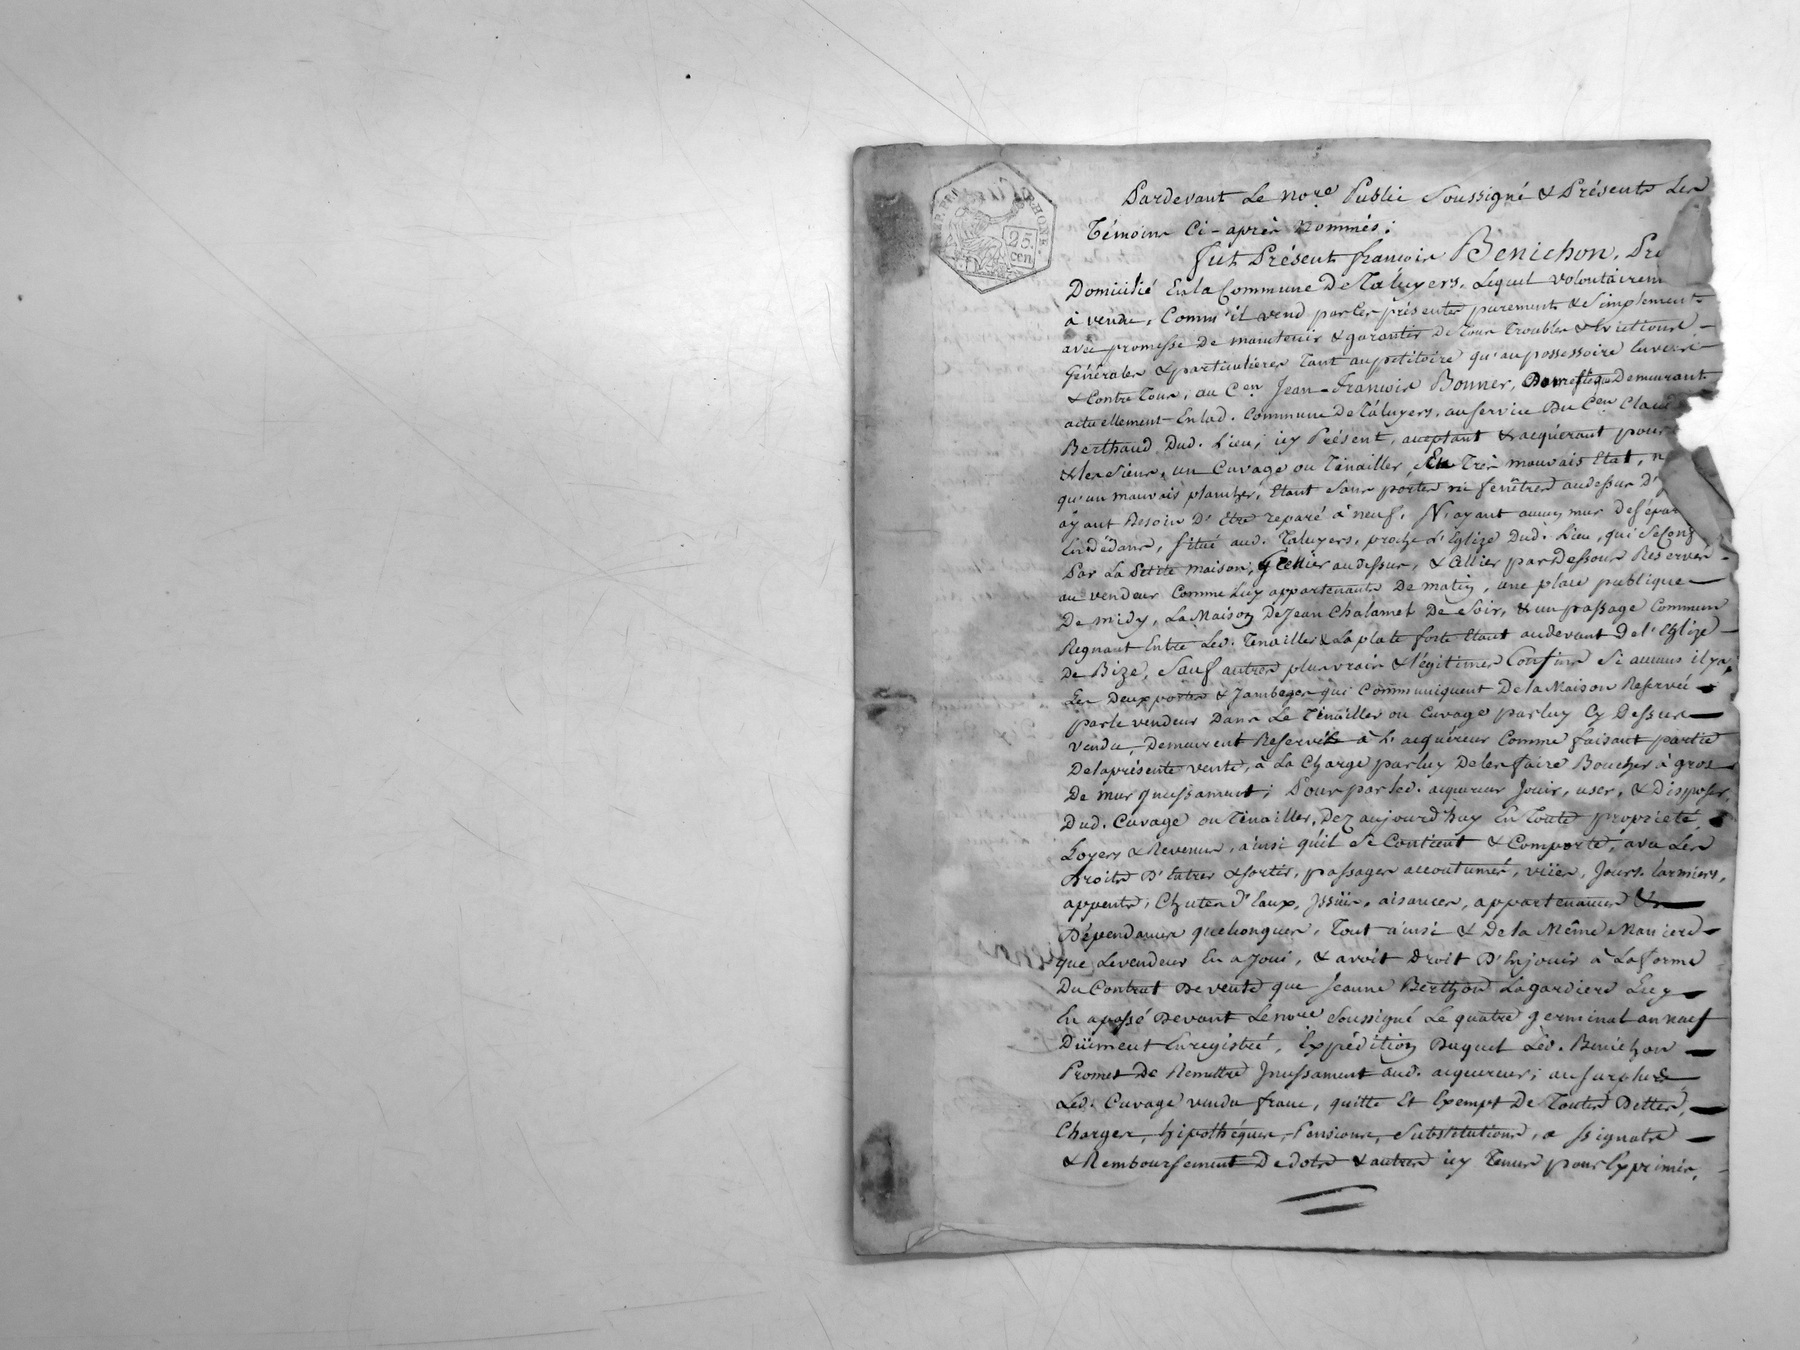 RHONE
25.
cen
Pardevant Le no.re Public Soussigné & Présents Les
Témoins Ci-après nommés;
fut Présent françois Benichon,
Domicilié En la Commune De Taluyers, Lequel volontairem
à vendu, Comm' il vend par Ces présentes purement & Simplement
avec promesse De maintenir & garantir De tous Troubles & Evictions
Générales & particulieres Tant au petitoire qu'au possessoire Envers
& Contre Tous, au C.en Jean-françois Bonner, Domestique Demeurant
actuellement En lad. Commune De Taluyers, au service Du C.en Claud
Berthaud Dud. Lieu, icy Présent, aceptant & acquérant pour
& les Siens, un Cuvage ou Tènailler, En Très mauvais Etat, n
qu'un mauvais plancher, Etant Sans portes ni fenêtres audessus D'
ayant Besoin D' Etre reparé à neuf, N'ayant aucun mur De séparat
En dédans, situé aud. Taluyers, proche L'Eglize Dud. Lieu, qui Se Confi
Par La Petite maison, Grenier audessus, & Cellier par Dessous Reservés
au vendeur Comme Luy appartenants De matin, une place publique
De midy, La Maison De Jean Chalamel De Soir, & un passage Commun
Regnant Entre Led. Tènailler & La plate forte Etant au devant De l'Eglize
De Bize, Sauf autres plus vrais & légitimes Confins Si aucuns il y a,
Les Deux portes & Jambages qui Communiquent De la Maison Reservée
par le vendeur Dans Le Tènailler ou Cuvage par luy Cy Dessus
vendu, Demeurent Reservés à L'acquéreur Comme faisant partie
De la présente vente, à La Charge par luy De les faire Boucher à gros
De mur incessament; Pour par led. acquereur Jouir, user, & Disposer,
Dud. Cuvage ou Tènailler, Dez aujourd'huy En Toute propriété,
Loyers & Revenus, ainsi qu'il Se Contient & Comporte, avec Les
Droits D' Entrer & sortir, passages accoutumés, vües, Jours, Larmiers,
appents, Chutes d'Eaux, Issües, aisances, appartenances &
Dépendances quelconques, Tout ainsi & De la Même Maniere
que Le vendeur En a Joui, & avoit Droit D'En jouir à La forme
Du Contrat De vente que Jeanne Berthon Lagardiere Luy
En a passé Devant Le no.re Soussigné Le quatre germinal an neuf
Düement Enregistré, Expédition Duquel Led. Benichon
Promet De Remettre Incessament aud. acquereur; au surplus
Led. Cuvage vendu franc, quitte Et Exempt De Toutes Dettes,
Charges, hipothéques, Pensions, Substitutions, assignats
& Remboursement De dots & autres icy Tenus pour Exprimés,